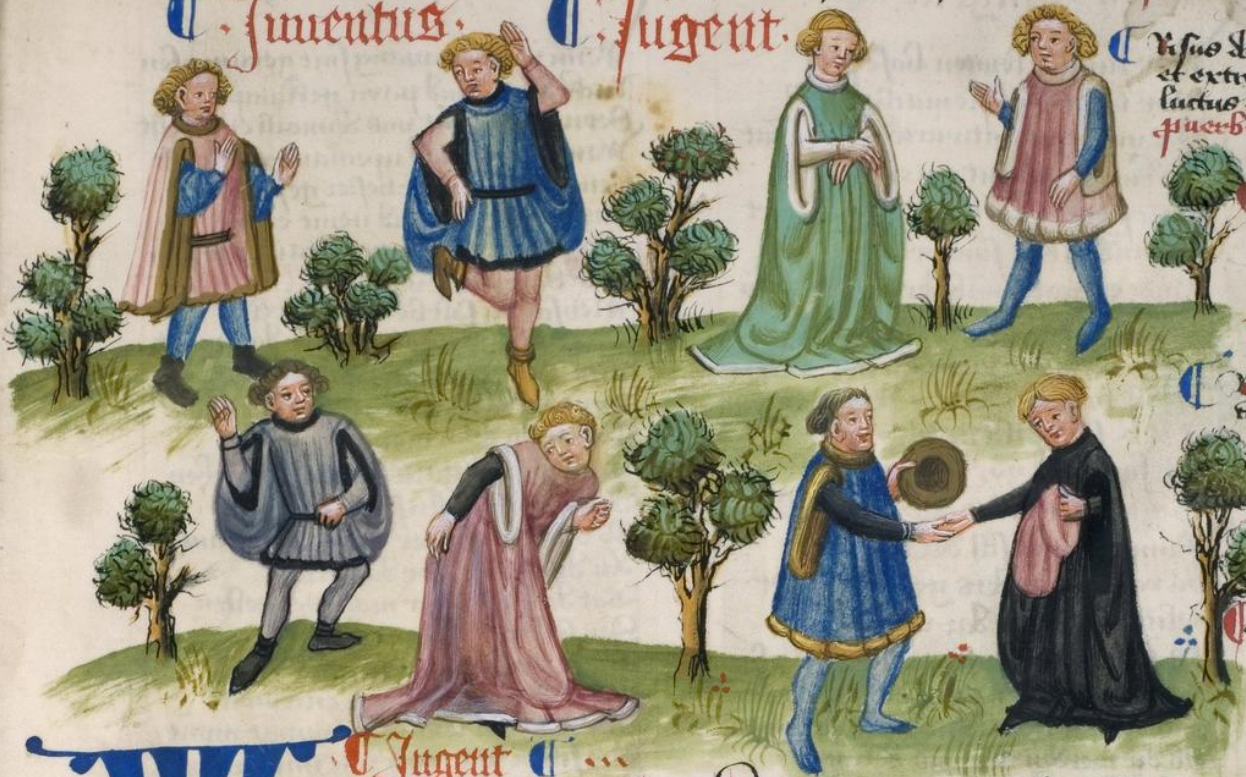 ¶ · Juuentus ·
¶ · Jugent ·
¶ Risus
et extr
luctus
puerb
¶ Jugent ¶ ...